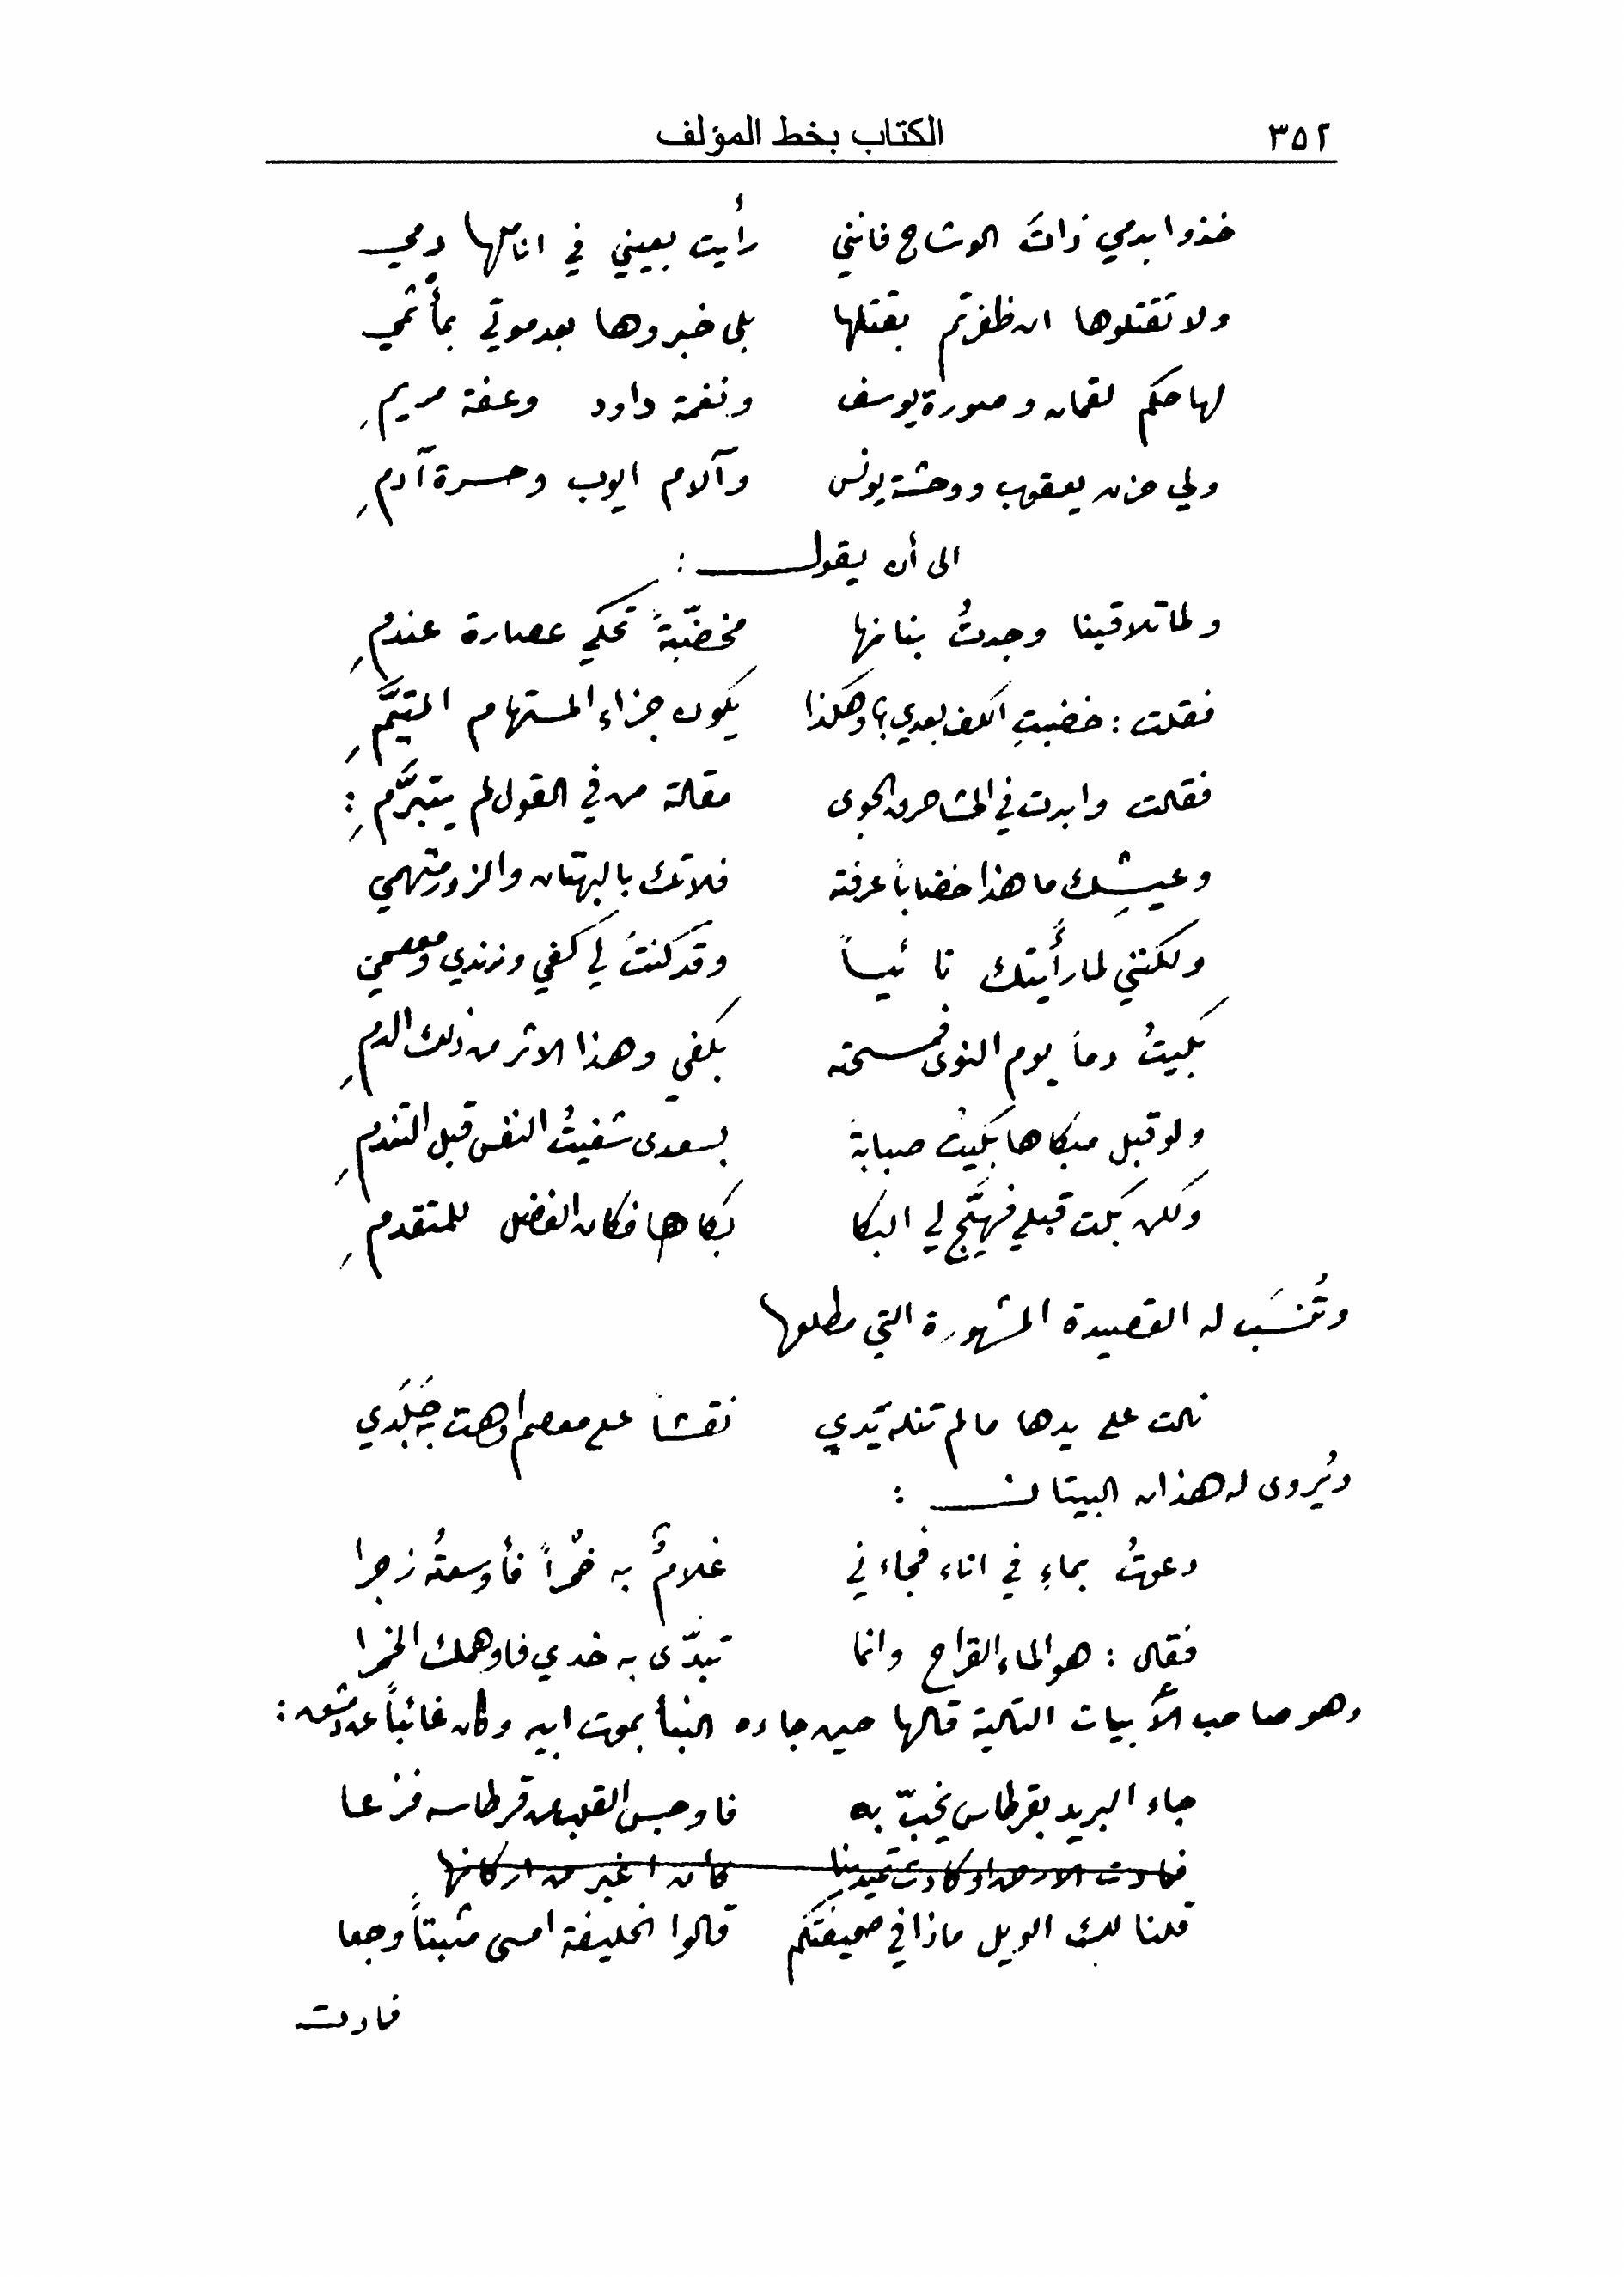 ٣٥٢ الكتاب بخط المؤلف
خذوا بدمي ذات الوشاح فانني رأيت بعيني في اناملها دمي
ولا تقتلوها ان ظفرتم بقتلها بلى خبروها بعد موتي بمأتمي
لها حكم لقمان وصورة يوسف ونغمة داود وعفة مريمِ
ولي حزن يعقوب ووحشة يونس وآلام ايوب وحسرة آدمِ
الى أن يقول :
ولما تلاقينا وجدتُ بنانها مخضّبةً تحكي عصارة عندمِ
فقلت : خضبتِ الكف بعدي؟ وهكذا يكون جزاء المستهام المتيَّمِ
فقالت وابدت في الحشا حرق الجوى مقالة من في القول لم يتبرَّمِ :
وعيشِك ما هذا خضاباً عرفته فلا تك بالبهتان والزور متهمي
ولكنني لما رأيتك نائياً وقد كنتَ لي كفي وزندي ومعصمي
بكيتُ دماً يوم النوى فمسحته بكفي وهذا الاثر من ذلك الدمِ
ولو قبل مبكاها بكيتُ صبابةً بسعدى شفيتُ النفس قبل التندمِ
ولكن بكت قبلي فهيَّج لي البكا بكاها فكان الفضل للمتقدمِ
وتُنسَب له القصيدة المشهورة التي مطلعها
نالت على يدها ما لم تنله يَدي نقشاً على معصم اوهت به جَلَدي
ويُروى له هذان البيتان :
دعوتُ بماءٍ في اناء فجاءني غلامٌ به خمراً فأوسعتُه زجرا
فقال : هو الماء القراح وانما تبدّى به خدي فاوهمك الخمرا
وهو صاحب الأبيات التالية قالها حين جاءه النبأ بموت ابيه وكان غائباً عن دمشق :
جاء البريد بقرطاس يخبّ به فاوجس القلب من قرطاسه فزعا
فمادت الارض او كادت تميد بنا كأن اغبر من اركانها
قلنا لك الويل ماذا في صحيفتكم قالوا الخليفة امسى مثبتاً وجعا
فمادت